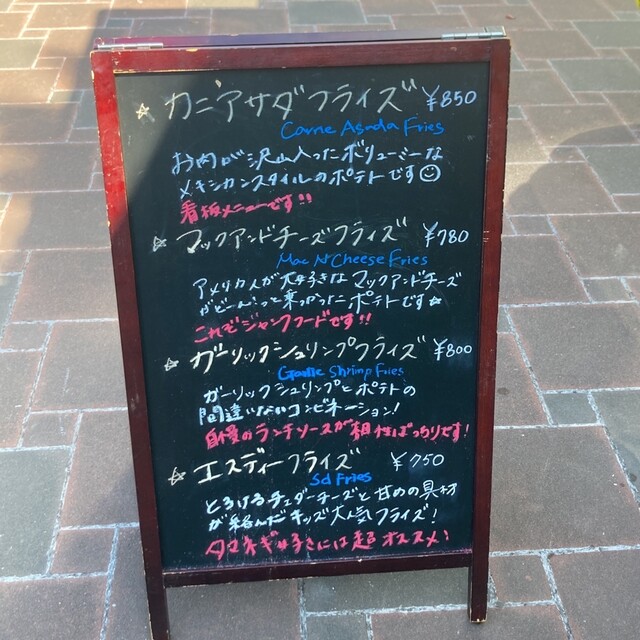 ☆ カニアサダフライズ ¥850
Carne Asada Fries
お肉が沢山入ったボリューミーな
メキシカンスタイルのポテトです☺
看板メニューです!!
☆ マックアンドチーズフライズ ¥780
Mac N' Cheese Fries
アメリカ人が大好きなマックアンドチーズ
がどーんっと乗っかったポテトです☆
これぞジャンクフードです!!
☆ ガーリックシュリンプフライズ ¥800
Garlic Shrimp Fries
ガーリックシュリンプとポテトの
間違いないコンビネーション!
自慢のランチソースが相性ばっちりです!
☆ エスディーフライズ ¥750
Sd Fries
とろけるチェダーチーズと甘めの具材
が絡んだキッズ大人気フライズ!
タマネギ好きには超オススメ!